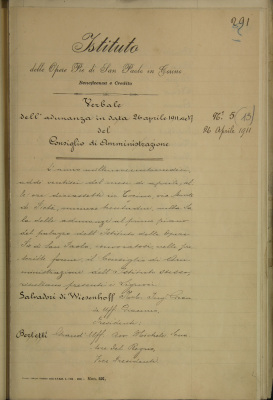 291
Istituto
delle Opere Pie di San Paolo in Torino
Beneficenza e Credito
Verbale
dell'adunanza in data 26 aprile 1911
del
Consiglio di Amministrazione
N° 5 (13)
26 Aprile 1911
L'anno millenovecentoundici
addì ventisei del mese di aprile al
le ore diciassette in Torino via Monte
di Pietà, numero trentadue, nella sa
la delle adunanze al primo piano
del palazzo dell'Istituto delle Opere
Pie di San Paolo, convocatosi nelle pre
scritte forme il Consiglio di Am
ministrazione dell'Istituto stesso,
risultano presenti i Signori
Salvadori di Wiesenhoff
Presidente
Bertetti
Vice Presidente